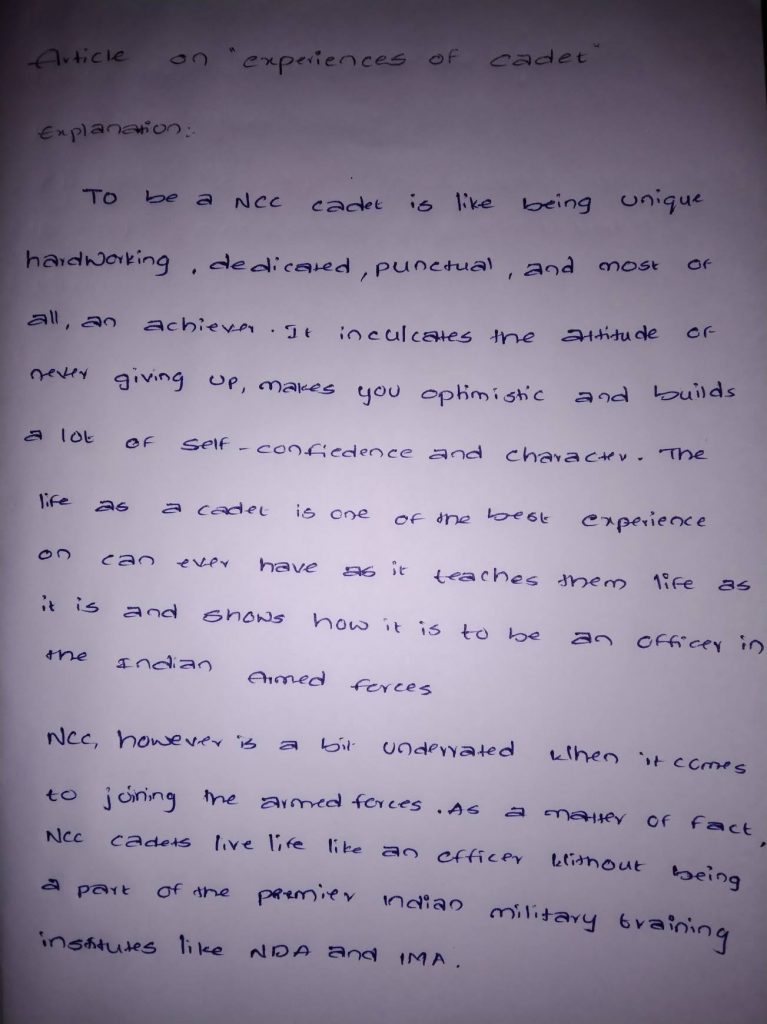 Article on "experiences of cadet"
Explanation:
To be a NCC cadet is like being unique
hardworking, dedicated, punctual, and most of
all, an achiever. It inculcates the attitude of
never giving up, makes you optimistic and builds
a lot of self-confiedence and character. The
life as a cadet is one of the best experience
on can ever have as it teaches them life as
it is and shows how it is to be an officer in
the Indian Armed forces
NCC, however is a bit underrated when it comes
to joining the armed forces. As a matter of fact,
NCC cadets live life like an officer without being
a part of the premier indian military training
institutes like NDA and IMA.